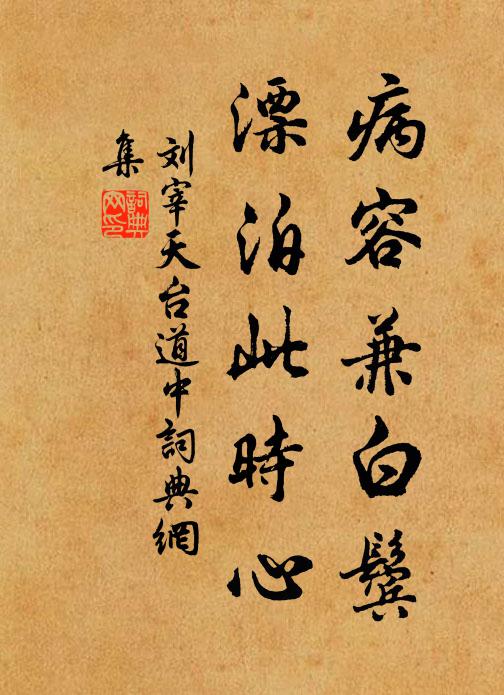 病容兼白鬓
漂泊此時心
刘宰天台道中詞典網
集
詞典网印